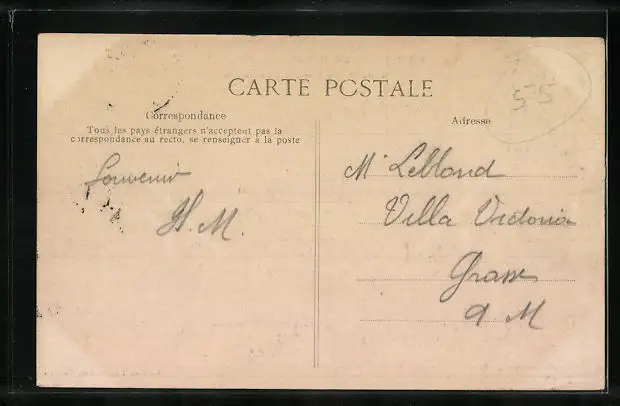 CARTE POSTALE
55
Correspondance
Tous les pays étrangers n'acceptent pas la
correspondance au recto, se renseigner à la poste
Adresse
Souvenir
H. M.
Mr Leblond
Villa Victoria
Grasse
A M